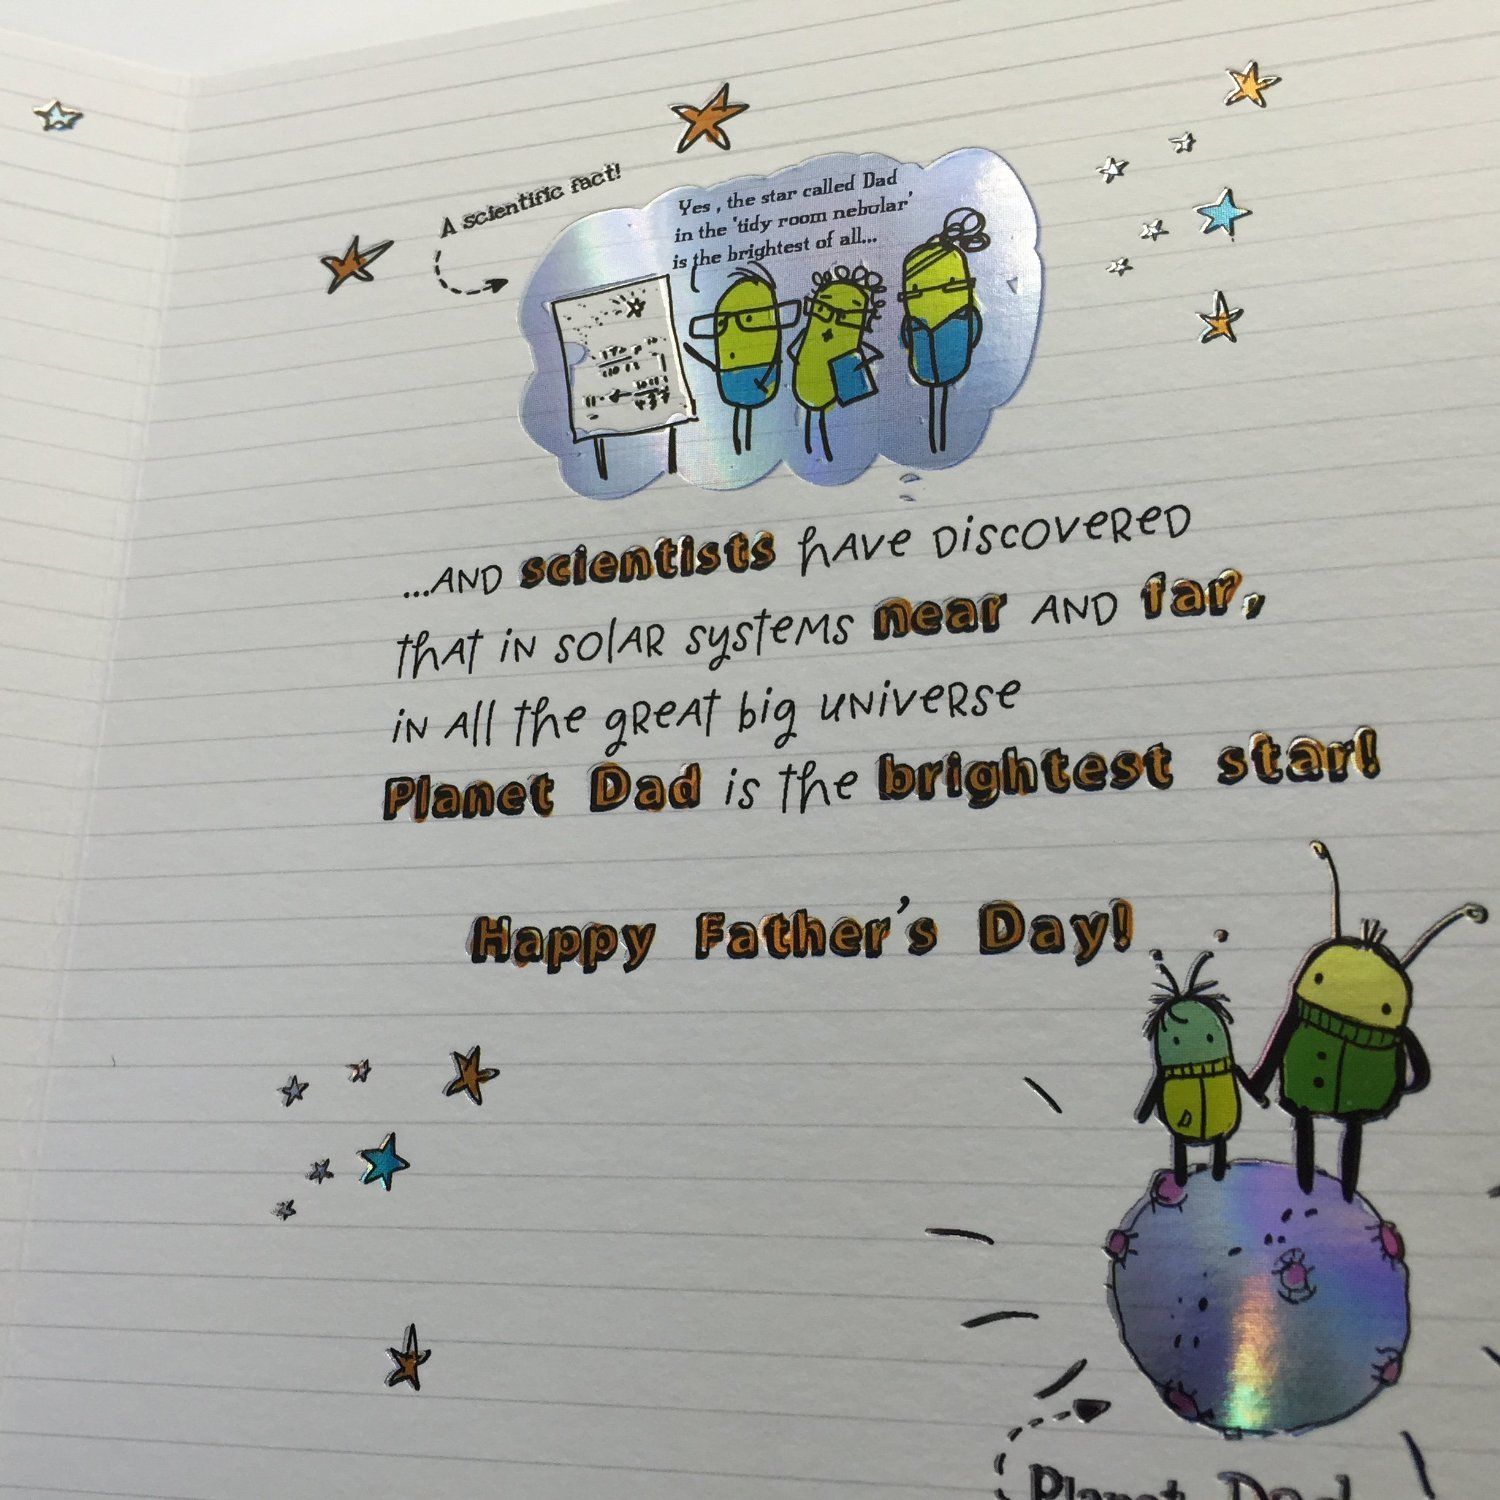 A scientific fact!
Yes, the star called Dad
in the 'tidy room nebular'
is the brightest of all...
...AND scientists have discovered
that in solar systems near and far,
in all the great big universe
Planet Dad is the brightest star!
Happy Father's Day!
Planet Dad